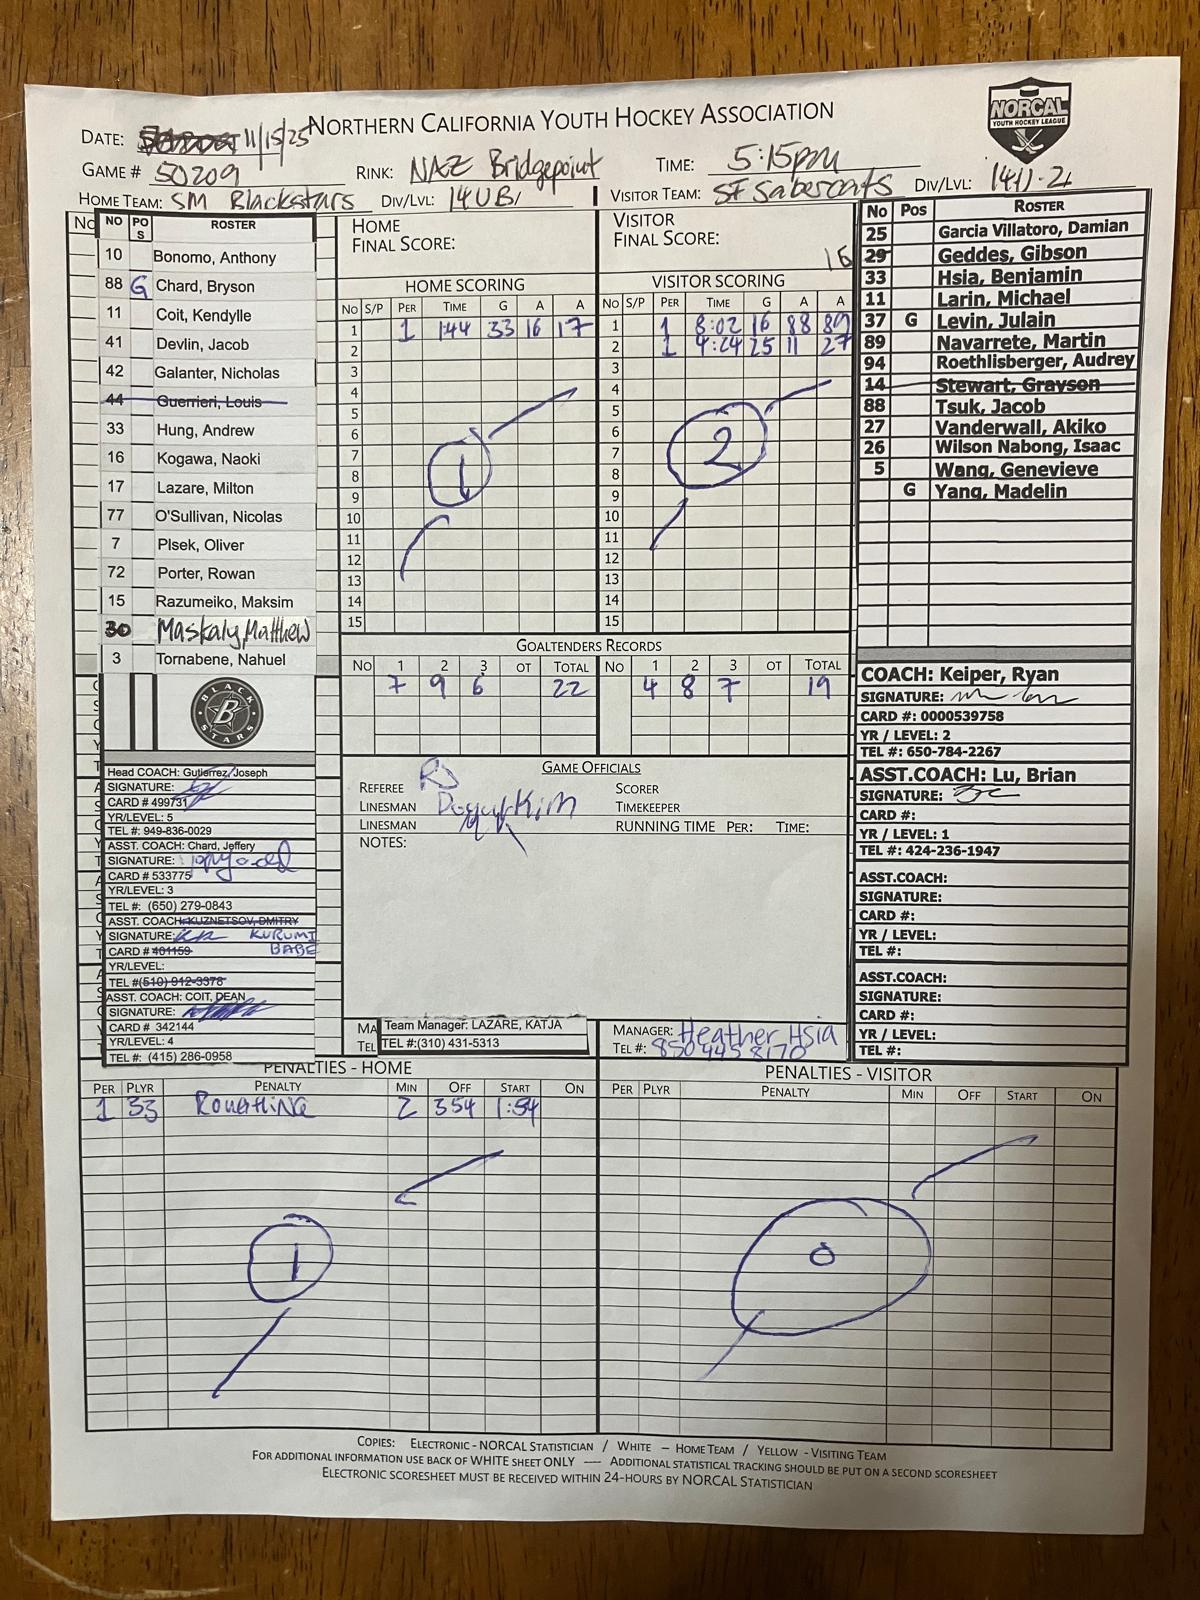 NORTHERN CALIFORNIA YOUTH HOCKEY ASSOCIATION
NORCAL
YOUTH HOCKEY LEAGUE
DATE: 11/15/25
GAME # 50209 RINK: NAZ Bridgepoint TIME: 5:15pm
HOME TEAM: SM Blackstars DIV/LVL: 14UB1 VISITOR TEAM: SF Sabercats DIV/LVL:
NO POS ROSTER
10 Bonomo, Anthony
88 G Chard, Bryson
11 Coit, Kendylle
41 Devlin, Jacob
42 Galanter, Nicholas
44 Guerrieri, Louis
33 Hung, Andrew
16 Kogawa, Naoki
17 Lazare, Milton
77 O'Sullivan, Nicolas
7 Plsek, Oliver
72 Porter, Rowan
15 Razumeiko, Maksim
30 Maskaly, Matthew
3 Tornabene, Nahuel
BLACK STARS
B
Head COACH: Gutierrez, Joseph
SIGNATURE:
CARD # 499731
YR/LEVEL: 5
TEL #: 949-836-0029
ASST. COACH: Chard, Jeffery
SIGNATURE:
CARD # 533775
YR/LEVEL: 3
TEL #: (650) 279-0843
ASST. COACH: KUZNETSOV, DMITRY
SIGNATURE: KURUMI
CARD # 401159 BABE
YR/LEVEL:
TEL #(510) 912-3378
ASST. COACH: COIT, DEAN
SIGNATURE:
CARD # 342144
YR/LEVEL: 4
TEL #: (415) 286-0958
HOME
FINAL SCORE:
HOME SCORING
NO S/P PER TIME G A A
1 1 1:44 33 16 17
2
3
4
5
6
7
8
9
10
11
12
13
14
15
1
VISITOR
FINAL SCORE:
16
VISITOR SCORING
NO S/P PER TIME G A A
1 1 8:02 16 88 89
2 1 4:24 25 11 27
3
4
5
6
7
8
9
10
11
12
13
14
15
2
GOALTENDERS RECORDS
NO 1 2 3 OT TOTAL NO 1 2 3 OT TOTAL
7 9 6 22 4 8 7 19
GAME OFFICIALS
REFEREE SCORER
LINESMAN TIMEKEEPER
LINESMAN RUNNING TIME PER: TIME:
NOTES:
Team Manager: LAZARE, KATJA
TEL #:(310) 431-5313
MANAGER: Heather Hsia
TEL #: 850 445 8170
No Pos ROSTER
25 Garcia Villatoro, Damian
29 Geddes, Gibson
33 Hsia, Benjamin
11 Larin, Michael
37 G Levin, Julain
89 Navarrete, Martin
94 Roethlisberger, Audrey
14 Stewart, Grayson
88 Tsuk, Jacob
27 Vanderwall, Akiko
26 Wilson Nabong, Isaac
5 Wang, Genevieve
G Yang, Madelin
COACH: Keiper, Ryan
SIGNATURE:
CARD #: 0000539758
YR / LEVEL: 2
TEL #: 650-784-2267
ASST.COACH: Lu, Brian
SIGNATURE:
CARD #:
YR / LEVEL: 1
TEL #: 424-236-1947
ASST.COACH:
SIGNATURE:
CARD #:
YR / LEVEL:
TEL #:
ASST.COACH:
SIGNATURE:
CARD #:
YR / LEVEL:
TEL #:
PENALTIES - HOME
PER PLYR PENALTY MIN OFF START ON
1 33 2 354 1:54
1
PENALTIES - VISITOR
PER PLYR PENALTY MIN OFF START ON
0
COPIES: ELECTRONIC - NORCAL STATISTICIAN / WHITE – HOME TEAM / YELLOW - VISITING TEAM
FOR ADDITIONAL INFORMATION USE BACK OF WHITE SHEET ONLY — ADDITIONAL STATISTICAL TRACKING SHOULD BE PUT ON A SECOND SCORESHEET
ELECTRONIC SCORESHEET MUST BE RECEIVED WITHIN 24-HOURS BY NORCAL STATISTICIAN